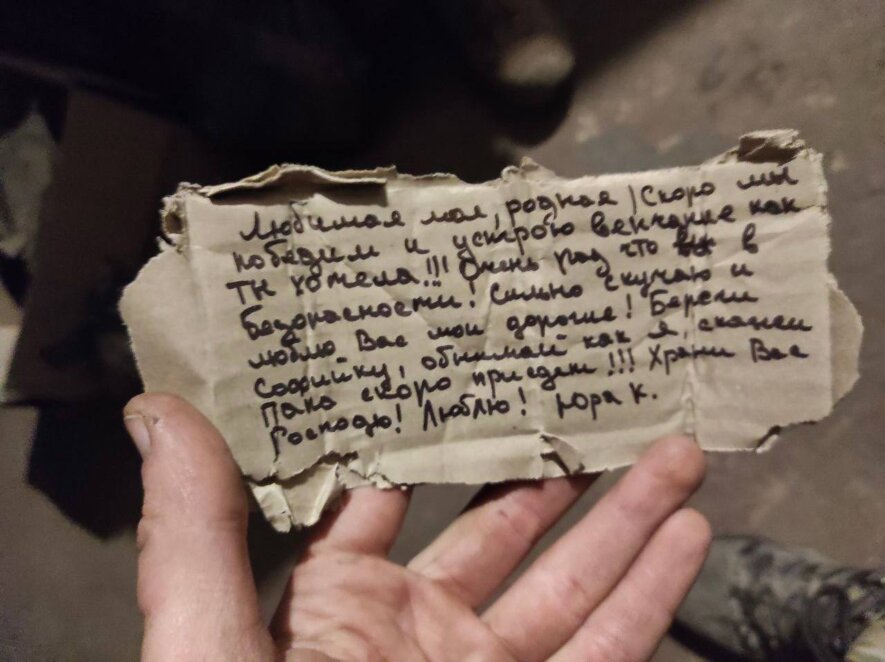 Любимая моя, родная! Скоро мы
победим и устрою венчание как
ты хотела!!! Очень рад что в
безопасности! Сильно скучаю и
люблю Вас мои дорогие! Береги
Софийку, обнимай как я, скажи
Папа скоро приедет!!! Храни Вас
Господь! Люблю! Юра К.